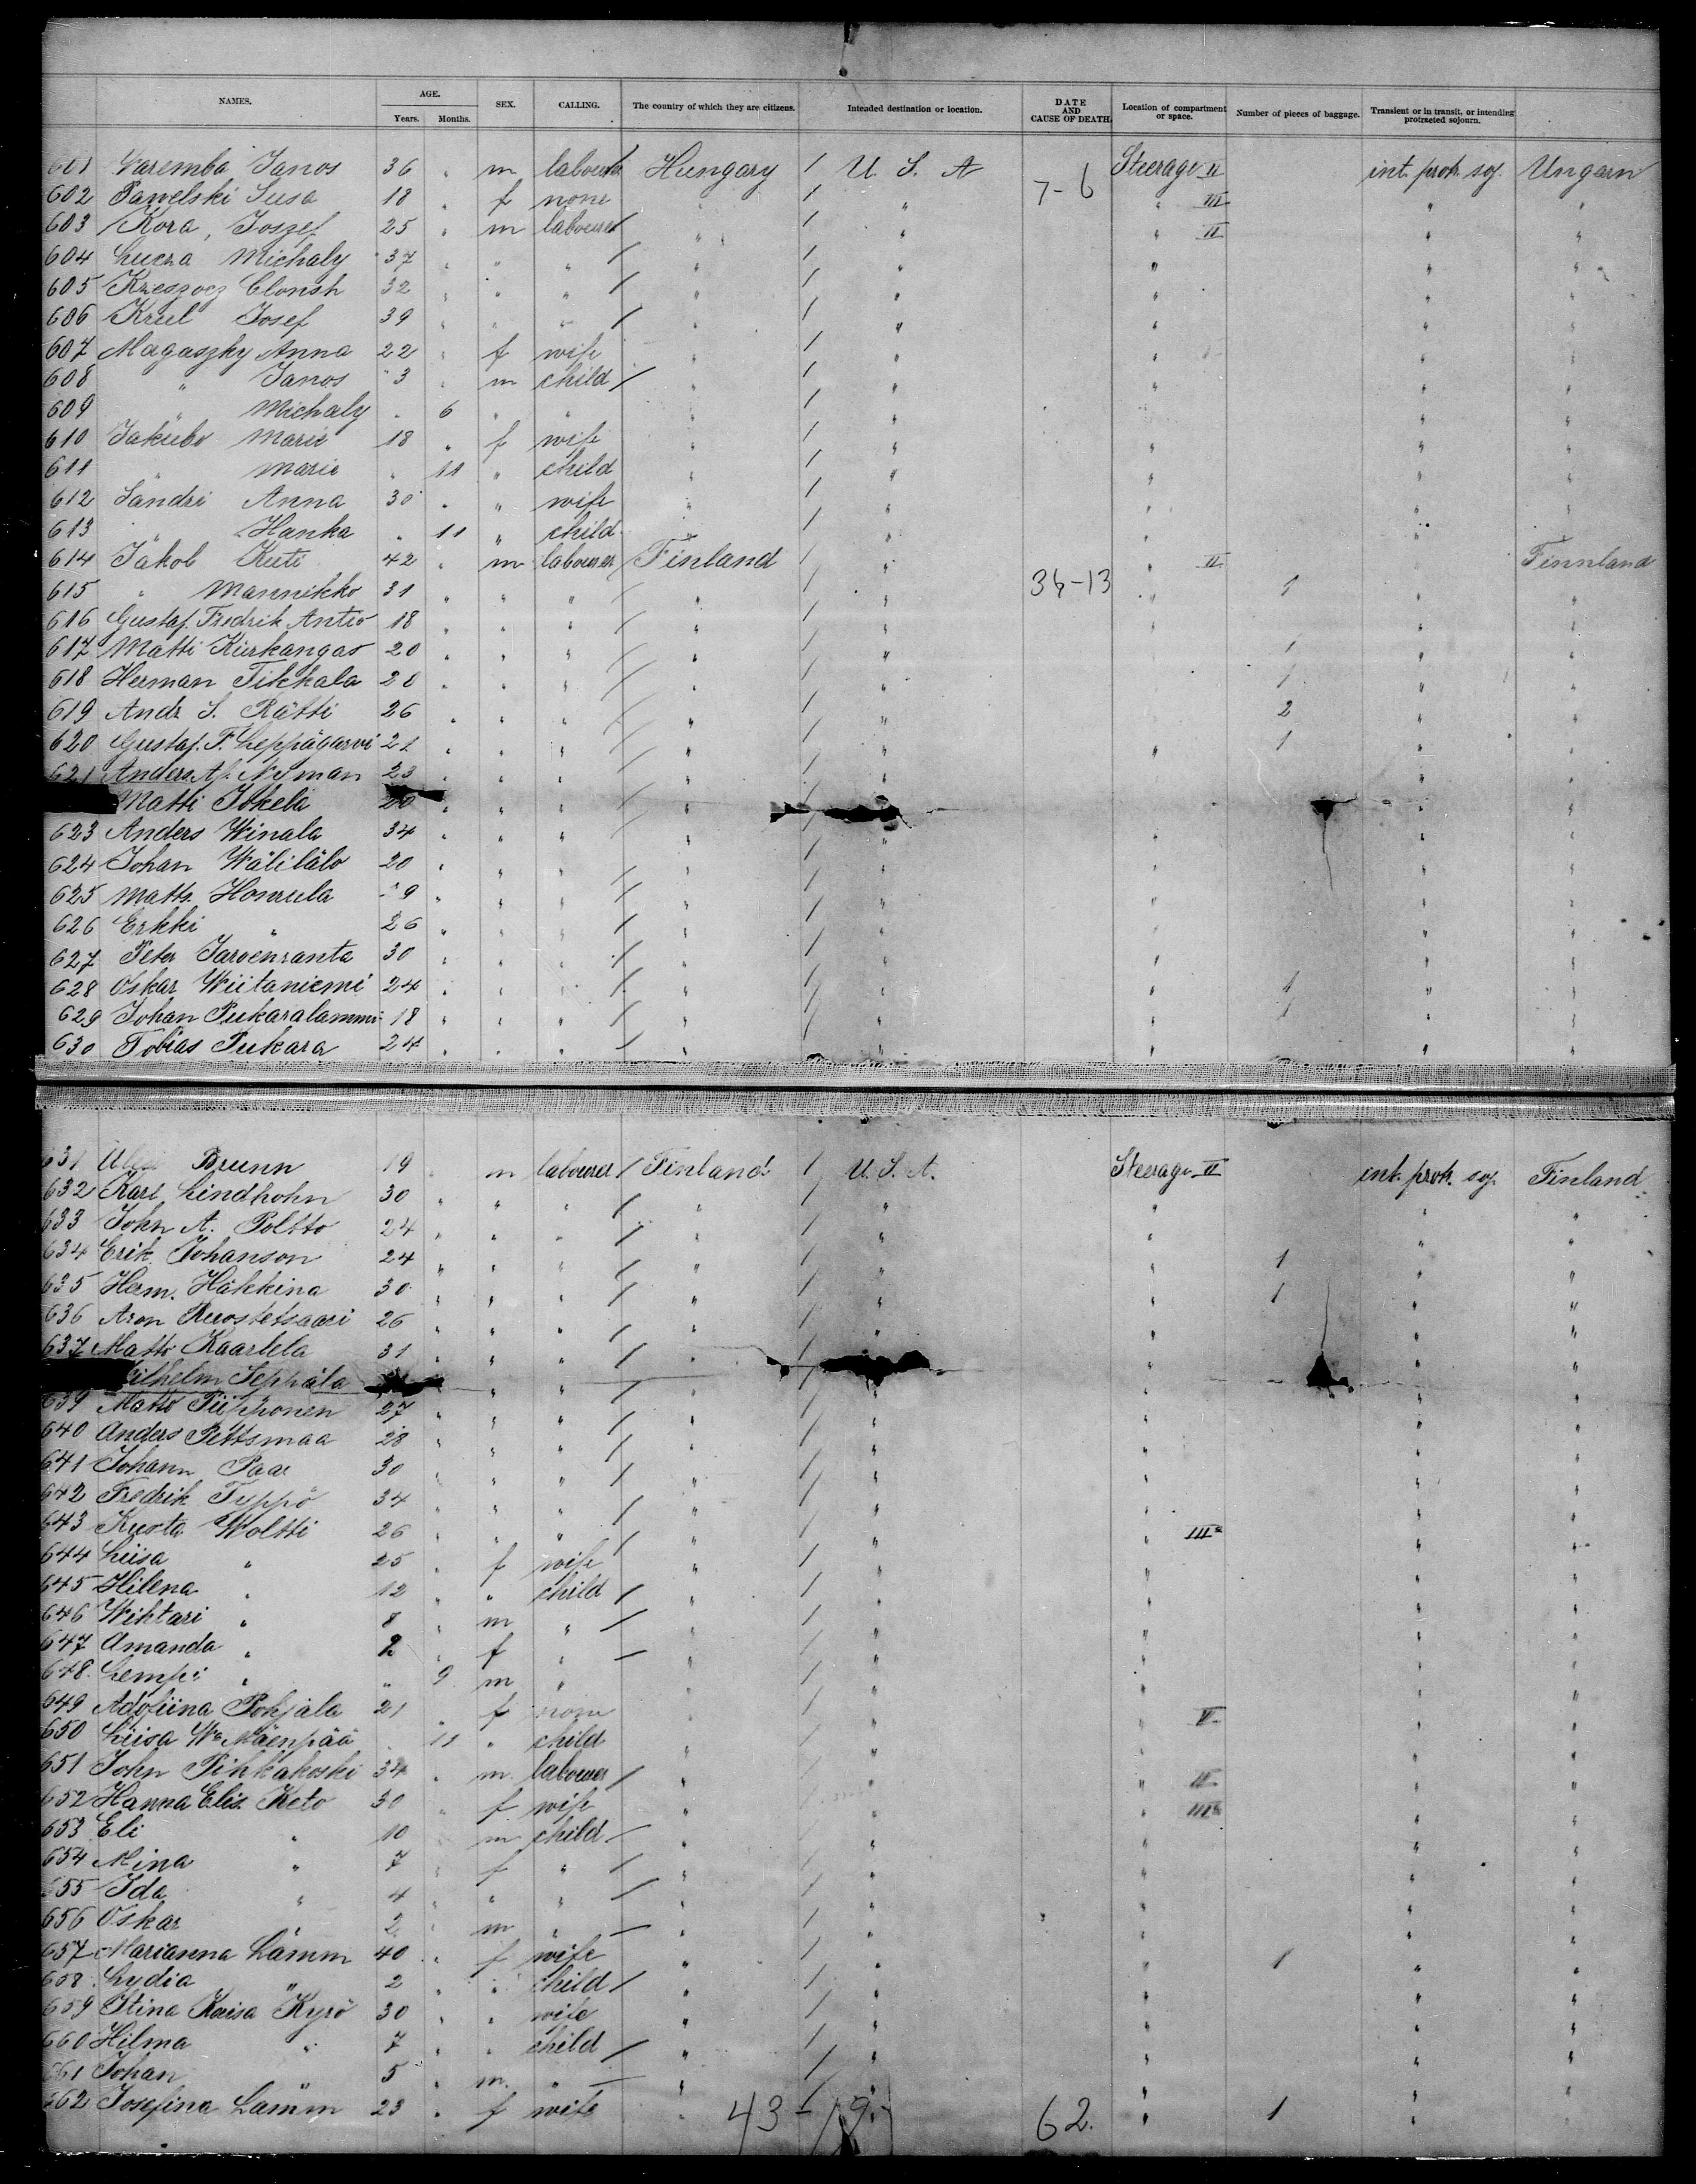 NAMES. AGE. SEX. CALLING. The country of which they are citizens. Intended destination or location. DATE AND CAUSE OF DEATH. Location of compartment or space. Number of pieces of baggage. Transient or in transit, or intending protracted sojourn.
Years. Months.
601 Waremba Janos 36 " m labourer / Hungary / U. S. A Steerage II int. protr. soj. Ungarn
602 Pawelski Susa 18 " f none " / " 7-6 " III " "
603 Kora, Joszef 25 " m labourer / " / " " II " "
604 Lucza Michaly 37 " " " / " / " " " "
605 Krzeszocz Clonsh 32 " " " / " / " " " "
606 Krul Josef 39 " " " / " / " " " "
607 Magaszky Anna 22 " f wife " / " " " "
608 " Janos 3 " m child / " / " " " "
609 " Michaly " 6 " " " / " " "
610 Jakubo Marie 18 " f wife " / " " " "
611 " Marie " 11 " child " / " " " "
612 Sandri Anna 30 " " wife " / " " " "
613 " Hanka " 11 " child " / " " " "
614 Jakob Kuti 42 " m labourer / Finland / " " II Finnland
615 " Mannikko 31 " " " / " / " 36-13 " 1 " "
616 Gustaf Fredrik Antio 18 " " " / " / " " " "
617 Matti Kiirkangas 20 " " " / " / " 1 " "
618 Herman Tikkala 20 " " " / " / " 1 " "
619 Andr S. Rätti 26 " " " / " / " 2 " "
620 Gustaf. F. Leppägarvi 21 " " " / " / " " 1 " "
621 Anders Af. Nyman 23 " " " / " / " " "
Matti Jokela 20 " " " / " / " "
623 Anders Winala 34 " " " / " / " " " "
624 Johan Wälilälo 20 " " " / " / " " " "
625 Matts Honrula 9 " " " / " / " " " "
626 Erkki " 26 " " " / " / " " " "
627 Peter Jarvenranta 30 " " " / " / " " " "
628 Oskar Wiitaniemi 24 " " " / " / " " 1 " "
629 Johan Pukaralammi 18 " " " / " / " " 1 " "
630 Tobias Pukara 24 " " " / " / " " " "
631 Brunn 19 " m labourer / Finland / U. S. A. Steerage II int. protr. soj. Finland
632 Karl Lindhohn 30 " " " / " / " " " "
633 John A. Poltto 24 " " " / " / " " " "
634 Erik Johanson 24 " " " / " / " " 1 " "
635 Herm. Häkkina 30 " " " / " / " " 1 " "
636 Aron Ruostetsaari 26 " " " / " / " " " "
637 Matts Kaarlela 31 " " " / " / " " "
ilhelm Seppäla " " / " / " " " "
639 Matts Piipponen 27 " " " / " / " " " "
640 Anders Pettsmaa 28 " " " / " / " " " "
641 Johann Paar 30 " " " / " / " " " "
642 Fredrik Typpö 34 " " " / " / " " " "
643 Kusta Woltti 26 " " " / " / " " III " "
644 Liisa " 25 " f wife " / " " " "
645 Hilena " 12 " " child / " / " " " "
646 Wiktari " 8 " m " / " / " " " "
647 Amanda " 2 " f " / " / " " " "
648 Lempi " " 9 m " " / " " " "
649 Adofiina Pohjala 21 " f none " / " " II " "
650 Liisa Wa Mäenpää " 11 " child " / " " " "
651 John Pihkakoski 34 " m labourer / " / " " II " "
652 Hanna Elis. Keto 30 " f wife " / " " III " "
653 Eli " 10 " m child / " / " " " "
654 Mina " 7 " f " / " / " " " "
655 Ida " 4 " " " / " / " " " "
656 Oskar " 2 " m " / " / " " " "
657 Marianna Lämm 40 " f wife " / " " 1 " "
658 Lydia " 2 " " child / " / " " " "
659 Stina Kaisa Kyrö 30 " " wife " / " " " "
660 Hilma " 7 " " child / " / " " " "
661 Johan " 5 " m " / " / " " " "
662 Josefina Lämm 23 " f wife " / " " 1 " "
43-19 62.